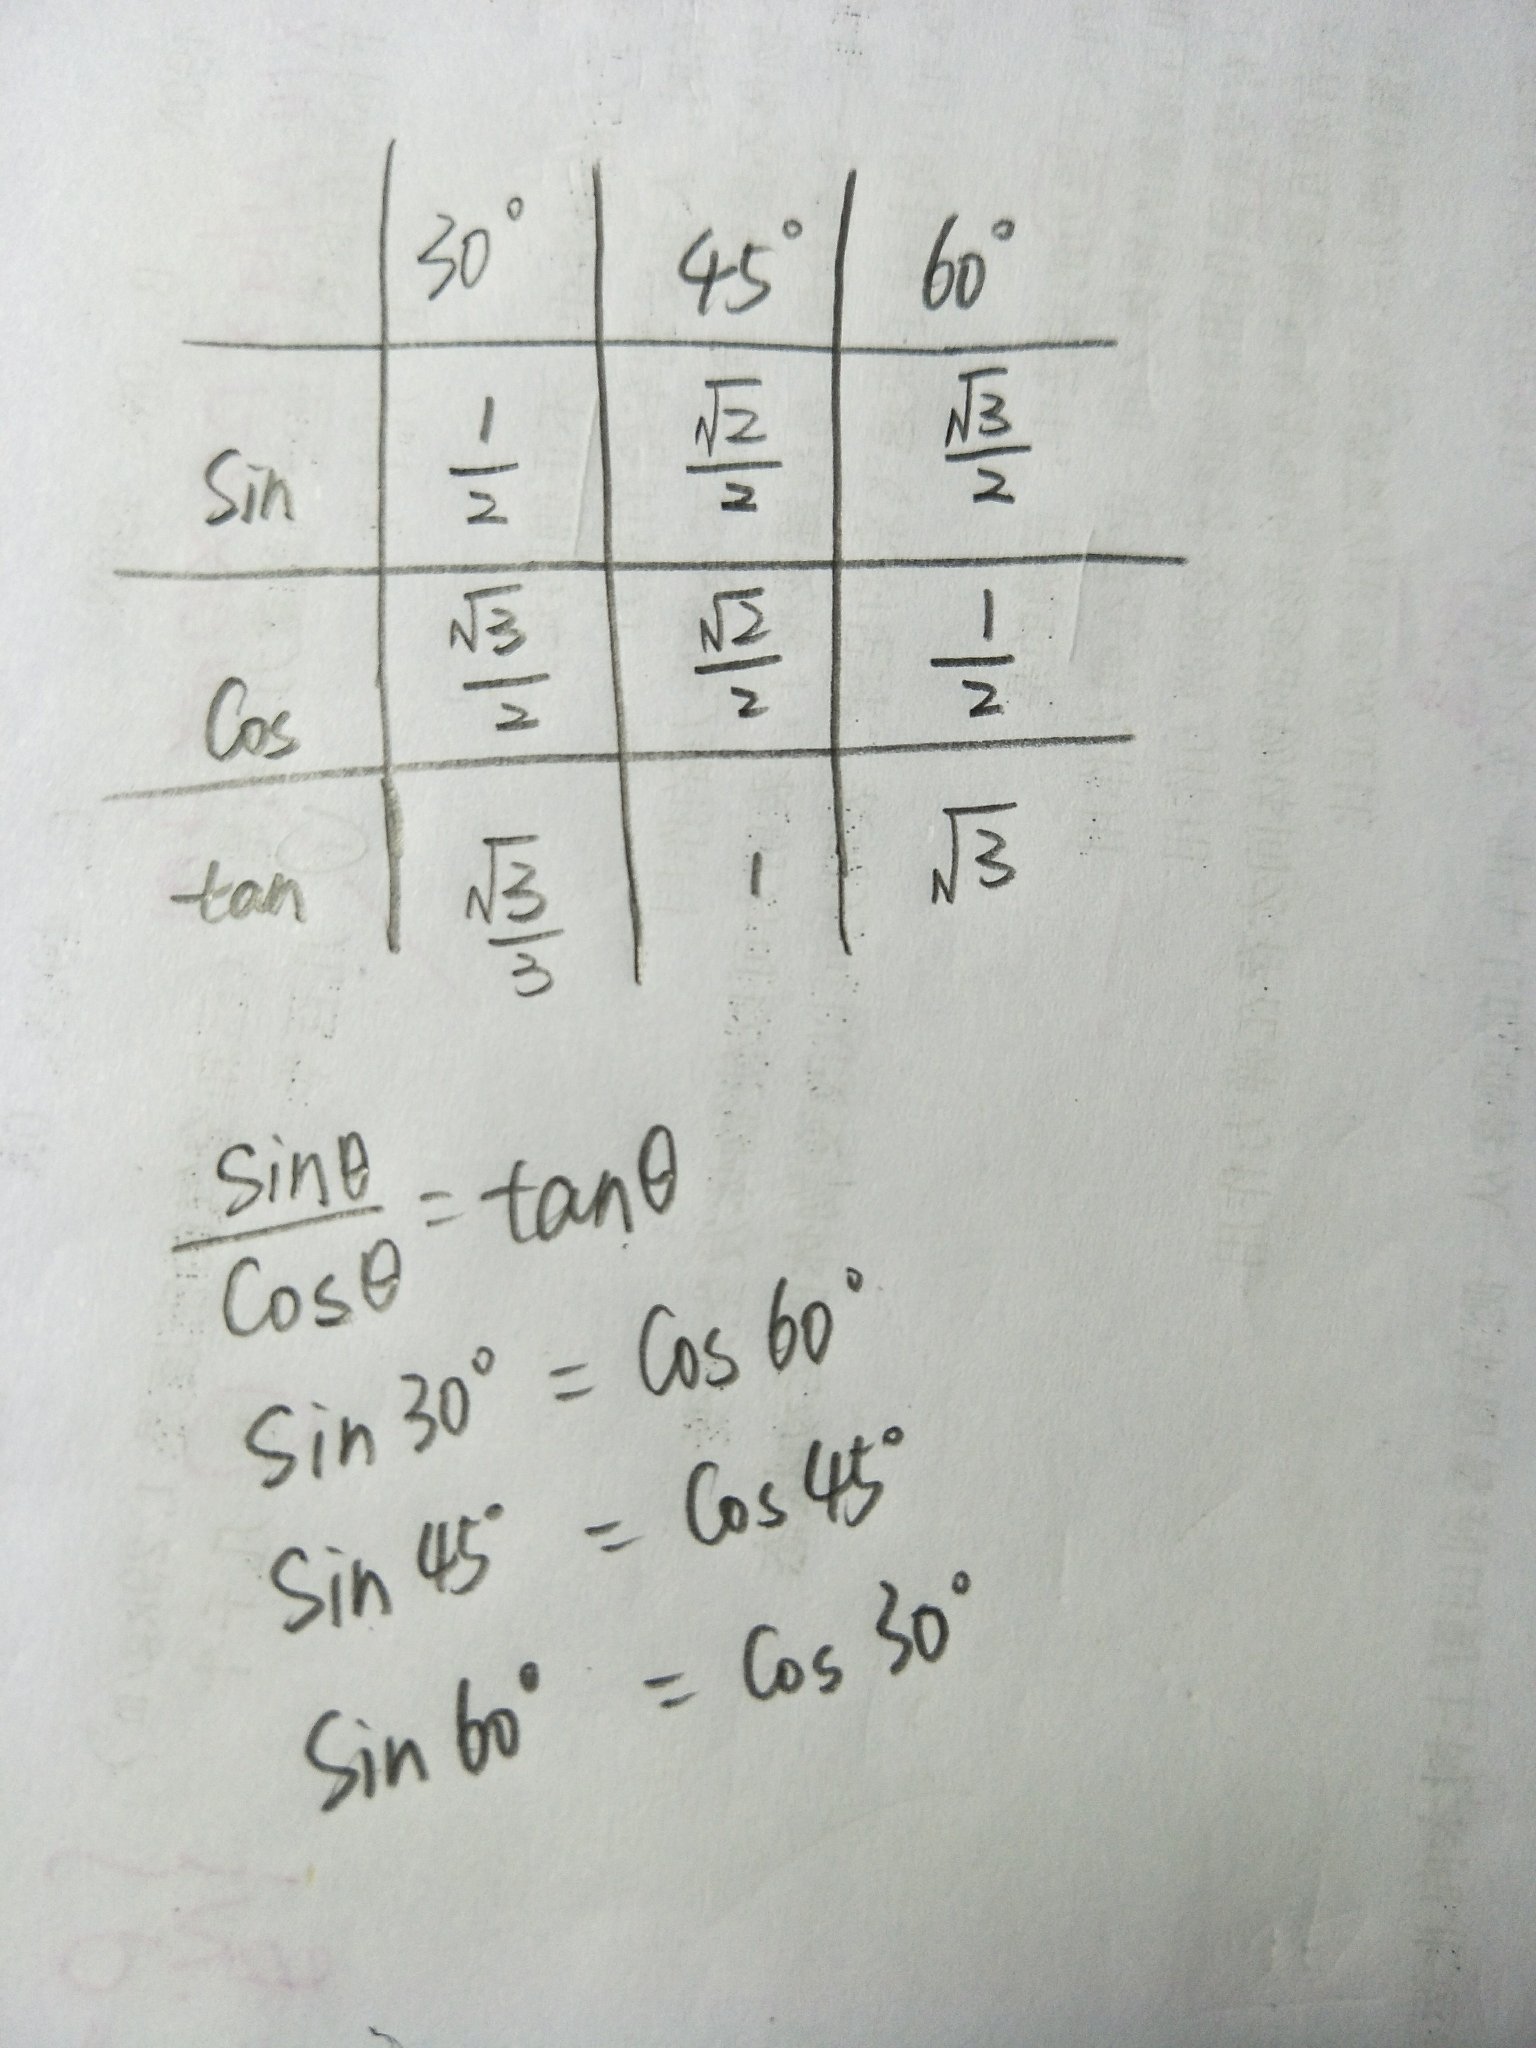 30° 45° 60°
Sin 1/2 √2/2 √3/2
Cos √3/2 √2/2 1/2
tan √3/3 1 √3
sinθ/cosθ = tanθ
Sin 30° = Cos 60°
Sin 45° = Cos 45°
Sin 60° = Cos 30°